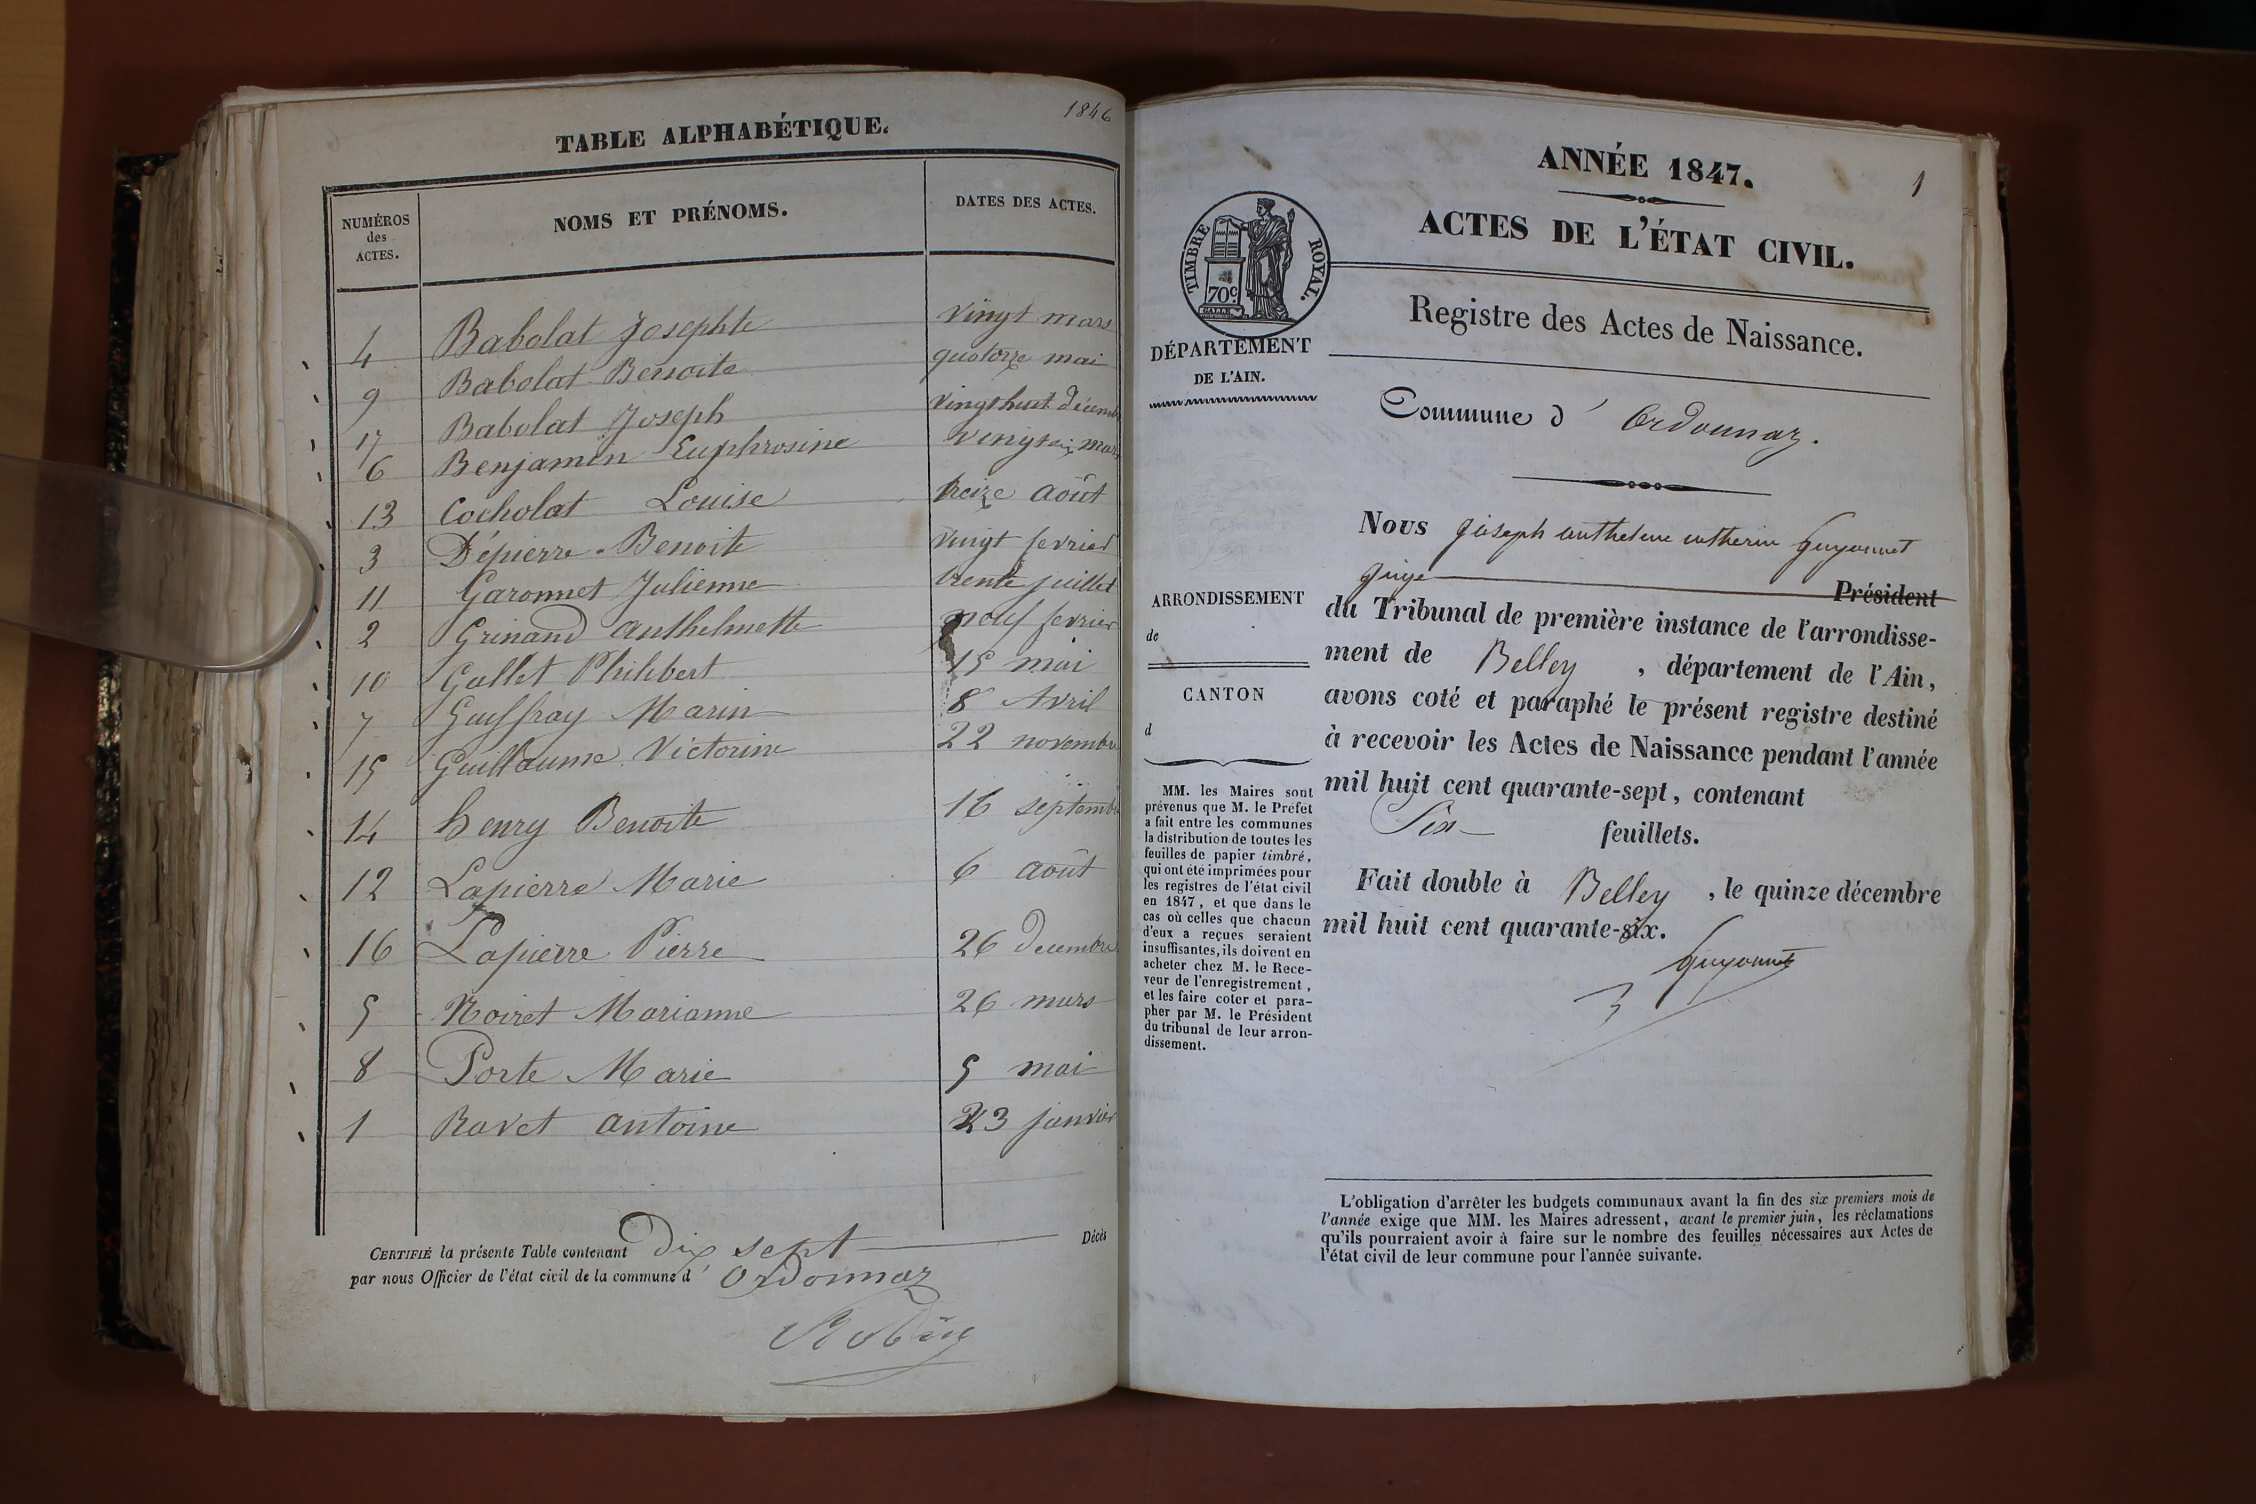 1846
TABLE ALPHABÉTIQUE.
NUMÉROS
des
ACTES.
NOMS ET PRÉNOMS.
DATES DES ACTES.
4 Babolat Josephte vingt mars
9 Babolat Benoite quatorze mai
17 Babolat Joseph vingthuit décembre
6 Benjamin Euphrosine vingtsix mars
13 Cocholat Louise treize août
3 Dépierre Benoite vingt fevrier
11 Garonnet Julienne trente juillet
2 Grinand anthelmette neuf fevrier
10 Gallet Philibert 15 mai
7 Guiffray Marin 8 Avril
15 Guillaume Victorine 22 novembre
14 henry Benoite 16 septembre
12 Lapierre Marie 6 août
16 Lapierre Pierre 26 decembre
5 Noiret Marianne 26 mars
8 Porte Marie 5 mai
1 Ravet antoine 23 janvier
CERTIFIÉ la présente Table contenant Dix sept Décès
par nous Officier de l'état civil de la commune d' Ordonnaz
ANNÉE 1847.
1
ACTES DE L'ÉTAT CIVIL.
TIMBRE ROYAL.
70c.
Registre des Actes de Naissance.
DÉPARTEMENT
DE L'AIN.
Commune d' Ordonnaz.
Nous joseph anthelme Guyonnet
juge Président
du Tribunal de première instance de l'arrondisse-
ment de Belley, département de l'Ain,
avons coté et paraphé le présent registre destiné
à recevoir les Actes de Naissance pendant l'année
mil huit cent quarante-sept, contenant
Six feuillets.
Fait double à Belley, le quinze décembre
mil huit cent quarante-six.
Guyonnet
ARRONDISSEMENT
de
CANTON
d
MM. les Maires sont
prévenus que M. le Préfet
a fait entre les communes
la distribution de toutes les
feuilles de papier timbré,
qui ont été imprimées pour
les registres de l'état civil
en 1847, et que dans le
cas où celles que chacun
d'eux a reçues seraient
insuffisantes, ils doivent en
acheter chez M. le Rece-
veur de l'enregistrement,
et les faire coter et para-
pher par M. le Président
du tribunal de leur arron-
dissement.
L'obligation d'arrêter les budgets communaux avant la fin des six premiers mois de
l'année exige que MM. les Maires adressent, avant le premier juin, les réclamations
qu'ils pourraient avoir à faire sur le nombre des feuilles nécessaires aux Actes de
l'état civil de leur commune pour l'année suivante.